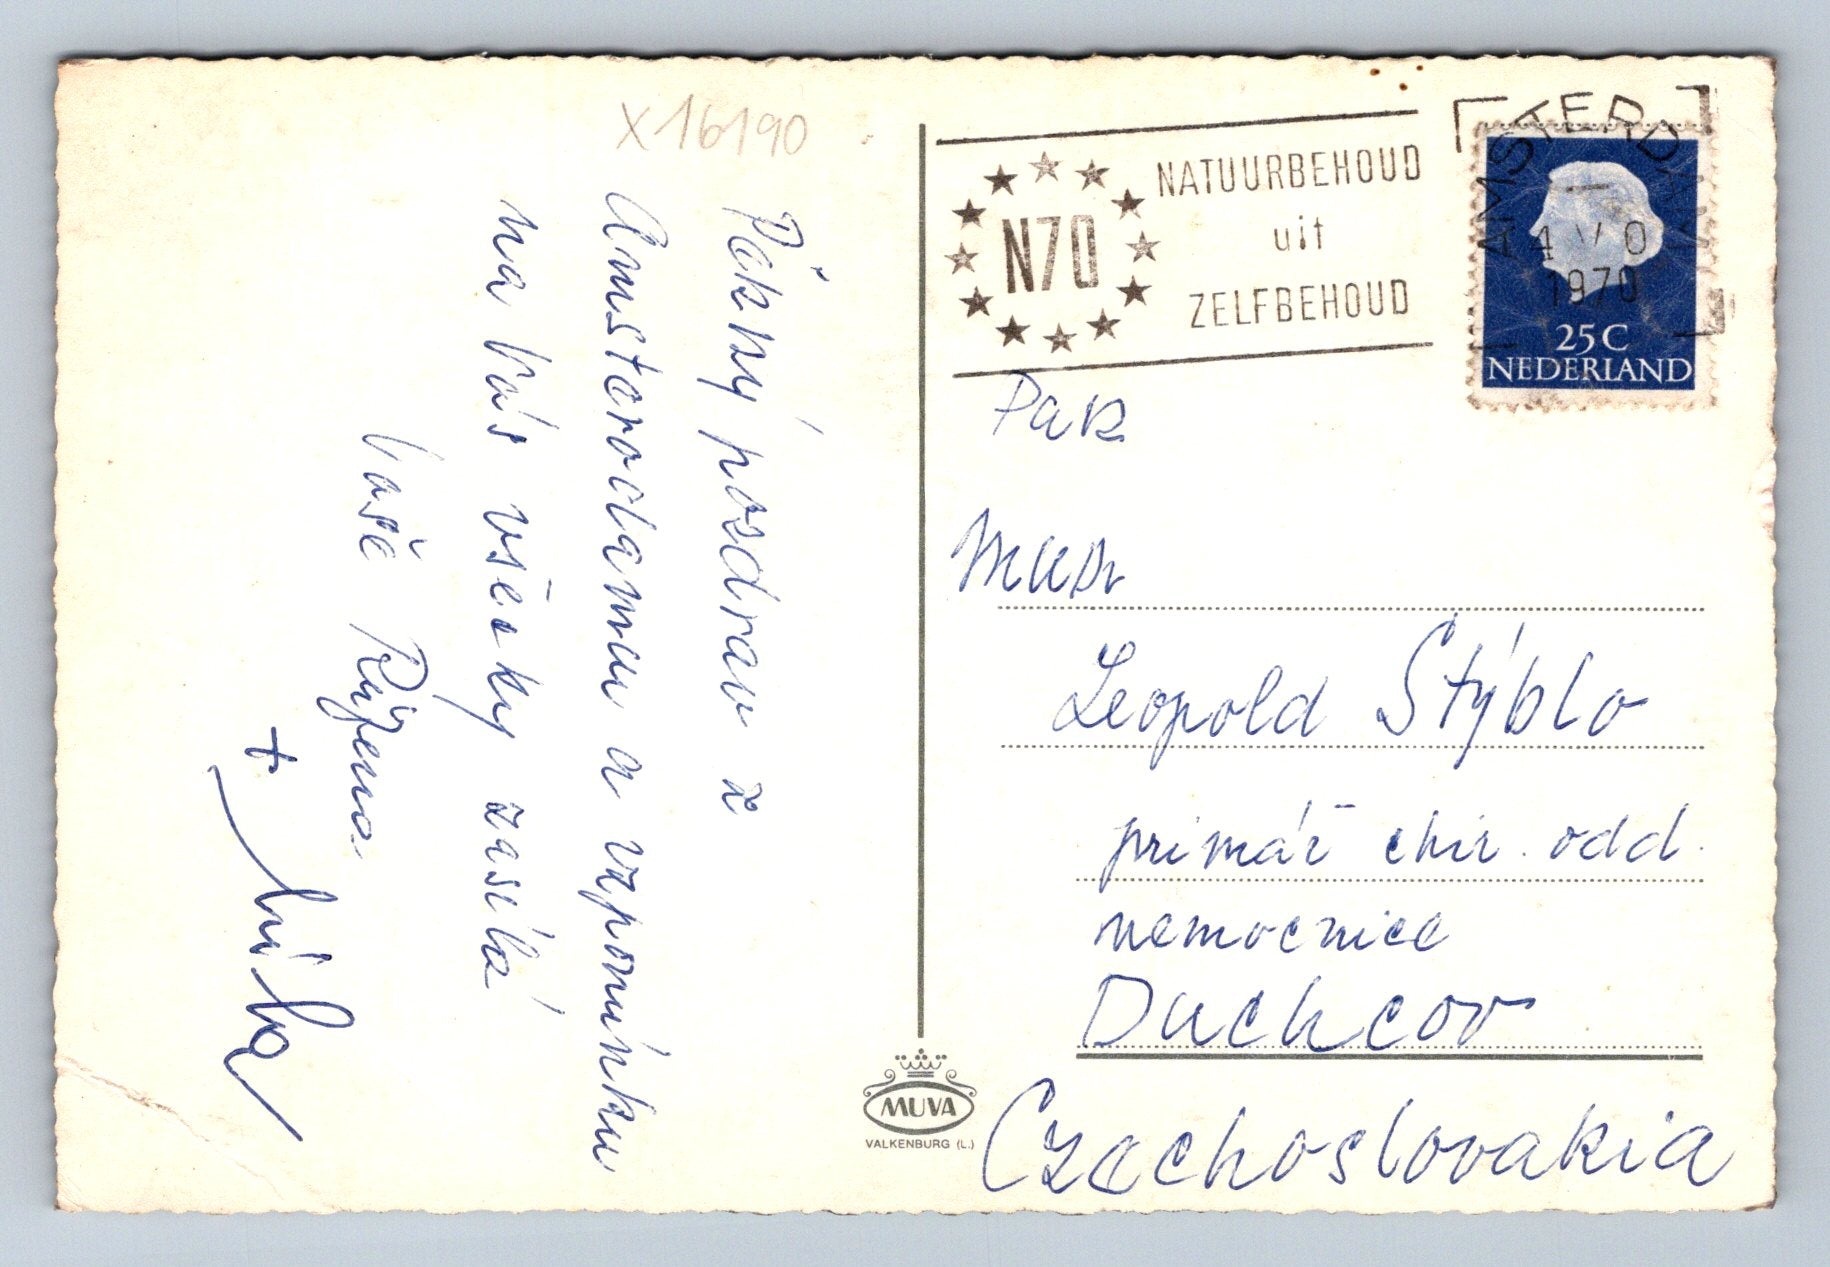 x16190
Pěkný pozdrav z
Amsterodamu a vzpomínku
na Vás všecky zasílá
Vaše Růžena
+ Líba
NATUURBEHOUD
uit
ZELFBEHOUD
N70
AMSTERDAM
1970
25C
NEDERLAND
MUDr
Leopold Stýblo
primář chir. odd.
nemocnice
Duchcov
Czechoslovakia
MUVA
VALKENBURG (L.)